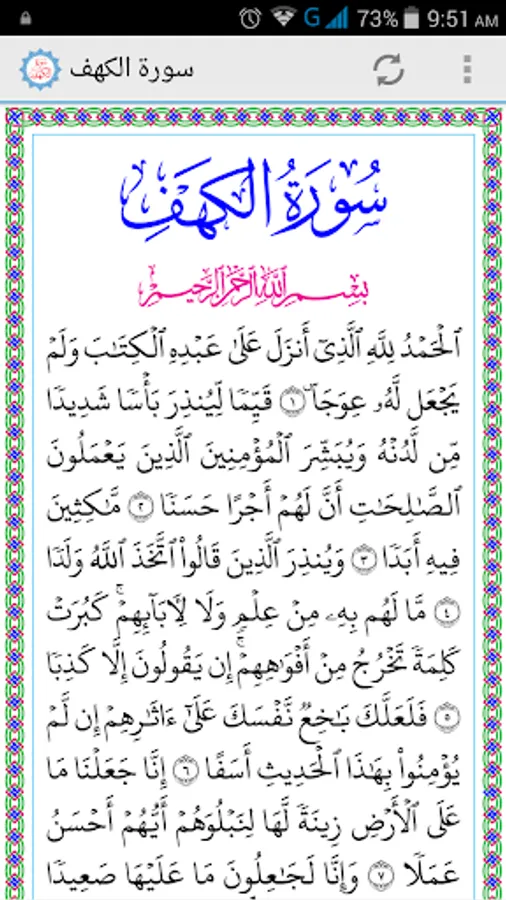 G 73% 9:51 AM
سورة الكهف
سُورَةُ الْكَهْفِ
بِسْمِ اللَّهِ الرَّحْمَٰنِ الرَّحِيمِ
ٱلْحَمْدُ لِلَّهِ ٱلَّذِىٓ أَنزَلَ عَلَىٰ عَبْدِهِ ٱلْكِتَٰبَ وَلَمْ
يَجْعَل لَّهُۥ عِوَجَاۜ ١ قَيِّمًا لِّيُنذِرَ بَأْسًا شَدِيدًا
مِّن لَّدُنْهُ وَيُبَشِّرَ ٱلْمُؤْمِنِينَ ٱلَّذِينَ يَعْمَلُونَ
ٱلصَّٰلِحَٰتِ أَنَّ لَهُمْ أَجْرًا حَسَنًا ٢ مَّٰكِثِينَ
فِيهِ أَبَدًا ٣ وَيُنذِرَ ٱلَّذِينَ قَالُوا۟ ٱتَّخَذَ ٱللَّهُ وَلَدًا
٤ مَّا لَهُم بِهِۦ مِنْ عِلْمٍ وَلَا لِءَابَآئِهِمْ ۚ كَبُرَتْ
كَلِمَةً تَخْرُجُ مِنْ أَفْوَٰهِهِمْ ۚ إِن يَقُولُونَ إِلَّا كَذِبًا
٥ فَلَعَلَّكَ بَٰخِعٌ نَّفْسَكَ عَلَىٰٓ ءَاثَٰرِهِمْ إِن لَّمْ
يُؤْمِنُوا۟ بِهَٰذَا ٱلْحَدِيثِ أَسَفًا ٦ إِنَّا جَعَلْنَا مَا
عَلَى ٱلْأَرْضِ زِينَةً لَّهَا لِنَبْلُوَهُمْ أَيُّهُمْ أَحْسَنُ
عَمَلًا ٧ وَإِنَّا لَجَٰعِلُونَ مَا عَلَيْهَا صَعِيدًا